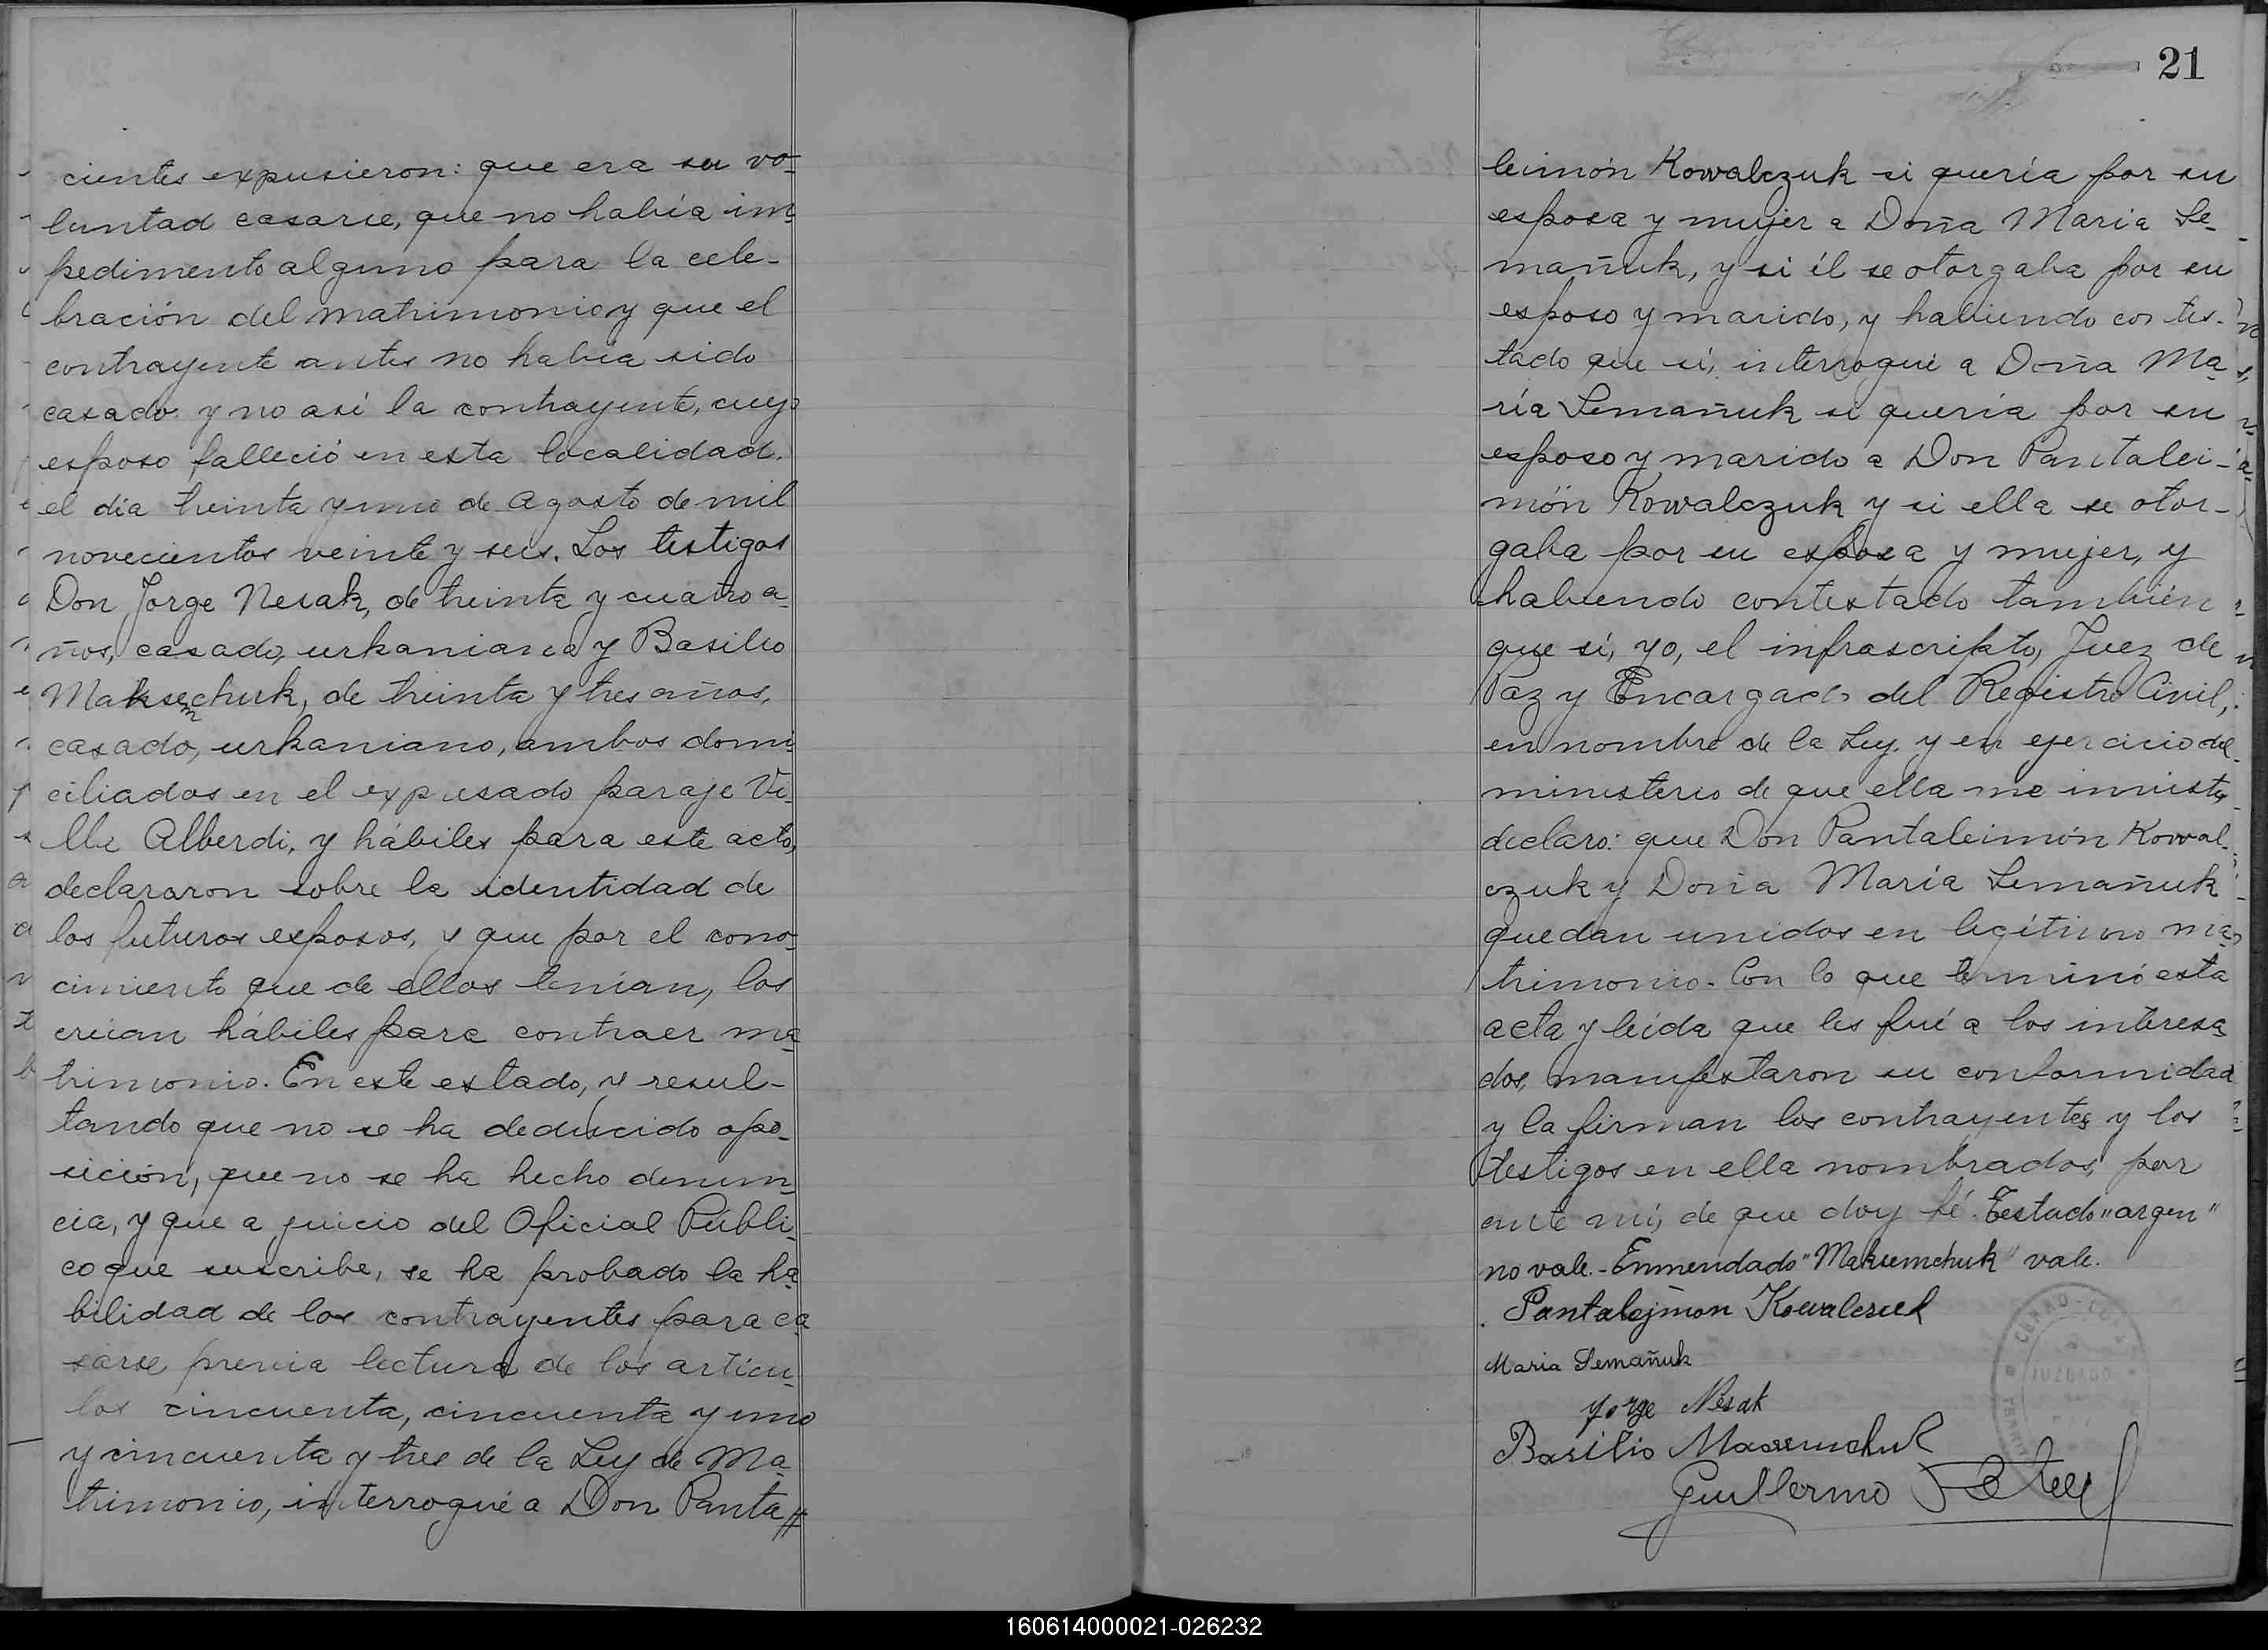 cientes expusieron: que era su vo-
luntad casarse, que no había im-
pedimento alguno para la cele-
bración del matrimonio y que el
contrayente antes no había sido
casado y no así la contrayente, cuyo
esposo falleció en esta localidad.
el día treinta y uno de Agosto de mil
novecientos veinte y seis. Los testigos
Don Jorge Nesak, de treinta y cuatro a-
ños, casado, urkaniano y Basilio
Maksemchuk, de treinta y tres años,
casado, urkaniano, ambos domi
ciliados en el expresado paraje Vi-
lla Alberdi, y hábiles para este acto,
declararon sobre la identidad de
los futuros esposos, y que por el cono-
cimiento que de ellos tenían, los
creían hábiles para contraer ma-
trimonio. En este estado, y resul-
tando que no se ha deduscido opo-
sición, que no se ha hecho denun-
cia, y que a juicio del Oficial Públi-
co que suscribe, se ha probado la ha-
bilidad de los contrayentes para ca-
sarse previa lectura de los artícu-
los cincuenta, cincuenta y uno
y cincuenta y tres de la Ley de Ma-
trimonio, interrogué a Don Panta//
21
leimón Kowalczuk si quería por su
esposa y mujer a Doña Maria Se-
mañuk, y si él se otorgaba por su
esposo y marido, y habiendo contes-
tado que sí, interrogué a Doña Ma-
ría Semañuk si quería por su
esposo y marido a Don Pantalei-
món Kowalczuk y si ella se otor-
gaba por su esposa y mujer, y
habiendo contestado también
que sí, yo, el infrascripto, Juez de
Paz y Encargado del Registro Civil,
en nombre de la Ley y en ejercicio del
ministerio de que ella me inviste,
declaro: que Don Pantaleimón Kowal-
czuk y Doña María Semañuk
quedan unidos en legítimo ma-
trimonio. Con lo que terminó esta
acta y leída que les fué a los interesa-
dos, manifestaron su conformidad
y la firman los contrayentes y los
testigos en ella nombrados, por
ante mí, de que doy fé. Testado "argen"
no vale.- Enmendado "Maksemchuk" vale.
Pantalejmon Kowalczuk
Maria Semañuk
Jorge Nesak
Basilio Maxemchuk
Guillermo
JUZGADO
160614000021-026232